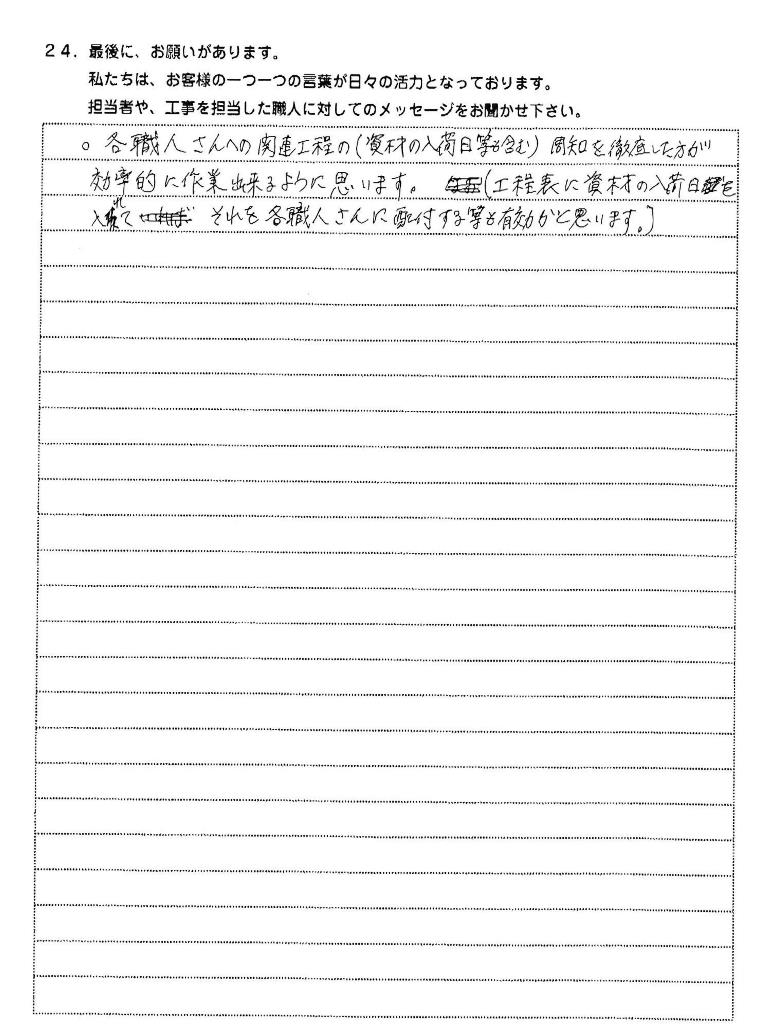 24. 最後に、お願いがあります。
私たちは、お客様の一つ一つの言葉が日々の活力となっております。
担当者や、工事を担当した職人に対してのメッセージをお聞かせ下さい。
○ 各職人さんへの関連工程の(資材の入荷日等も含む)周知を徹底した方が
効率的に作業出来るように思います。 (工程表に資材の入荷日を
入れて それを各職人さんに配付する等も有効かと思います。)